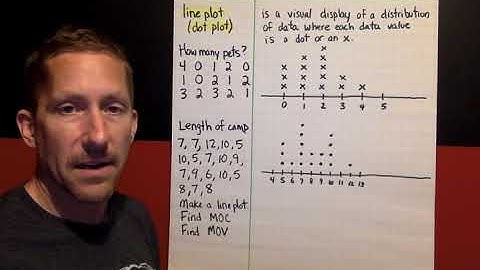 line plot
(dot plot)
is a visual display of a distribution
of data where each data value
is a dot or an x.
How many pets?
4 0 1 2 0
1 0 2 1 2
3 2 3 2 1
0 1 2 3 4 5
Length of camp
7, 7, 12, 10, 5
10, 5, 7, 10, 9,
7, 9, 6, 10, 5
8, 7, 8
Make a line plot.
Find MOC
Find MOV
4 5 6 7 8 9 10 11 12 13